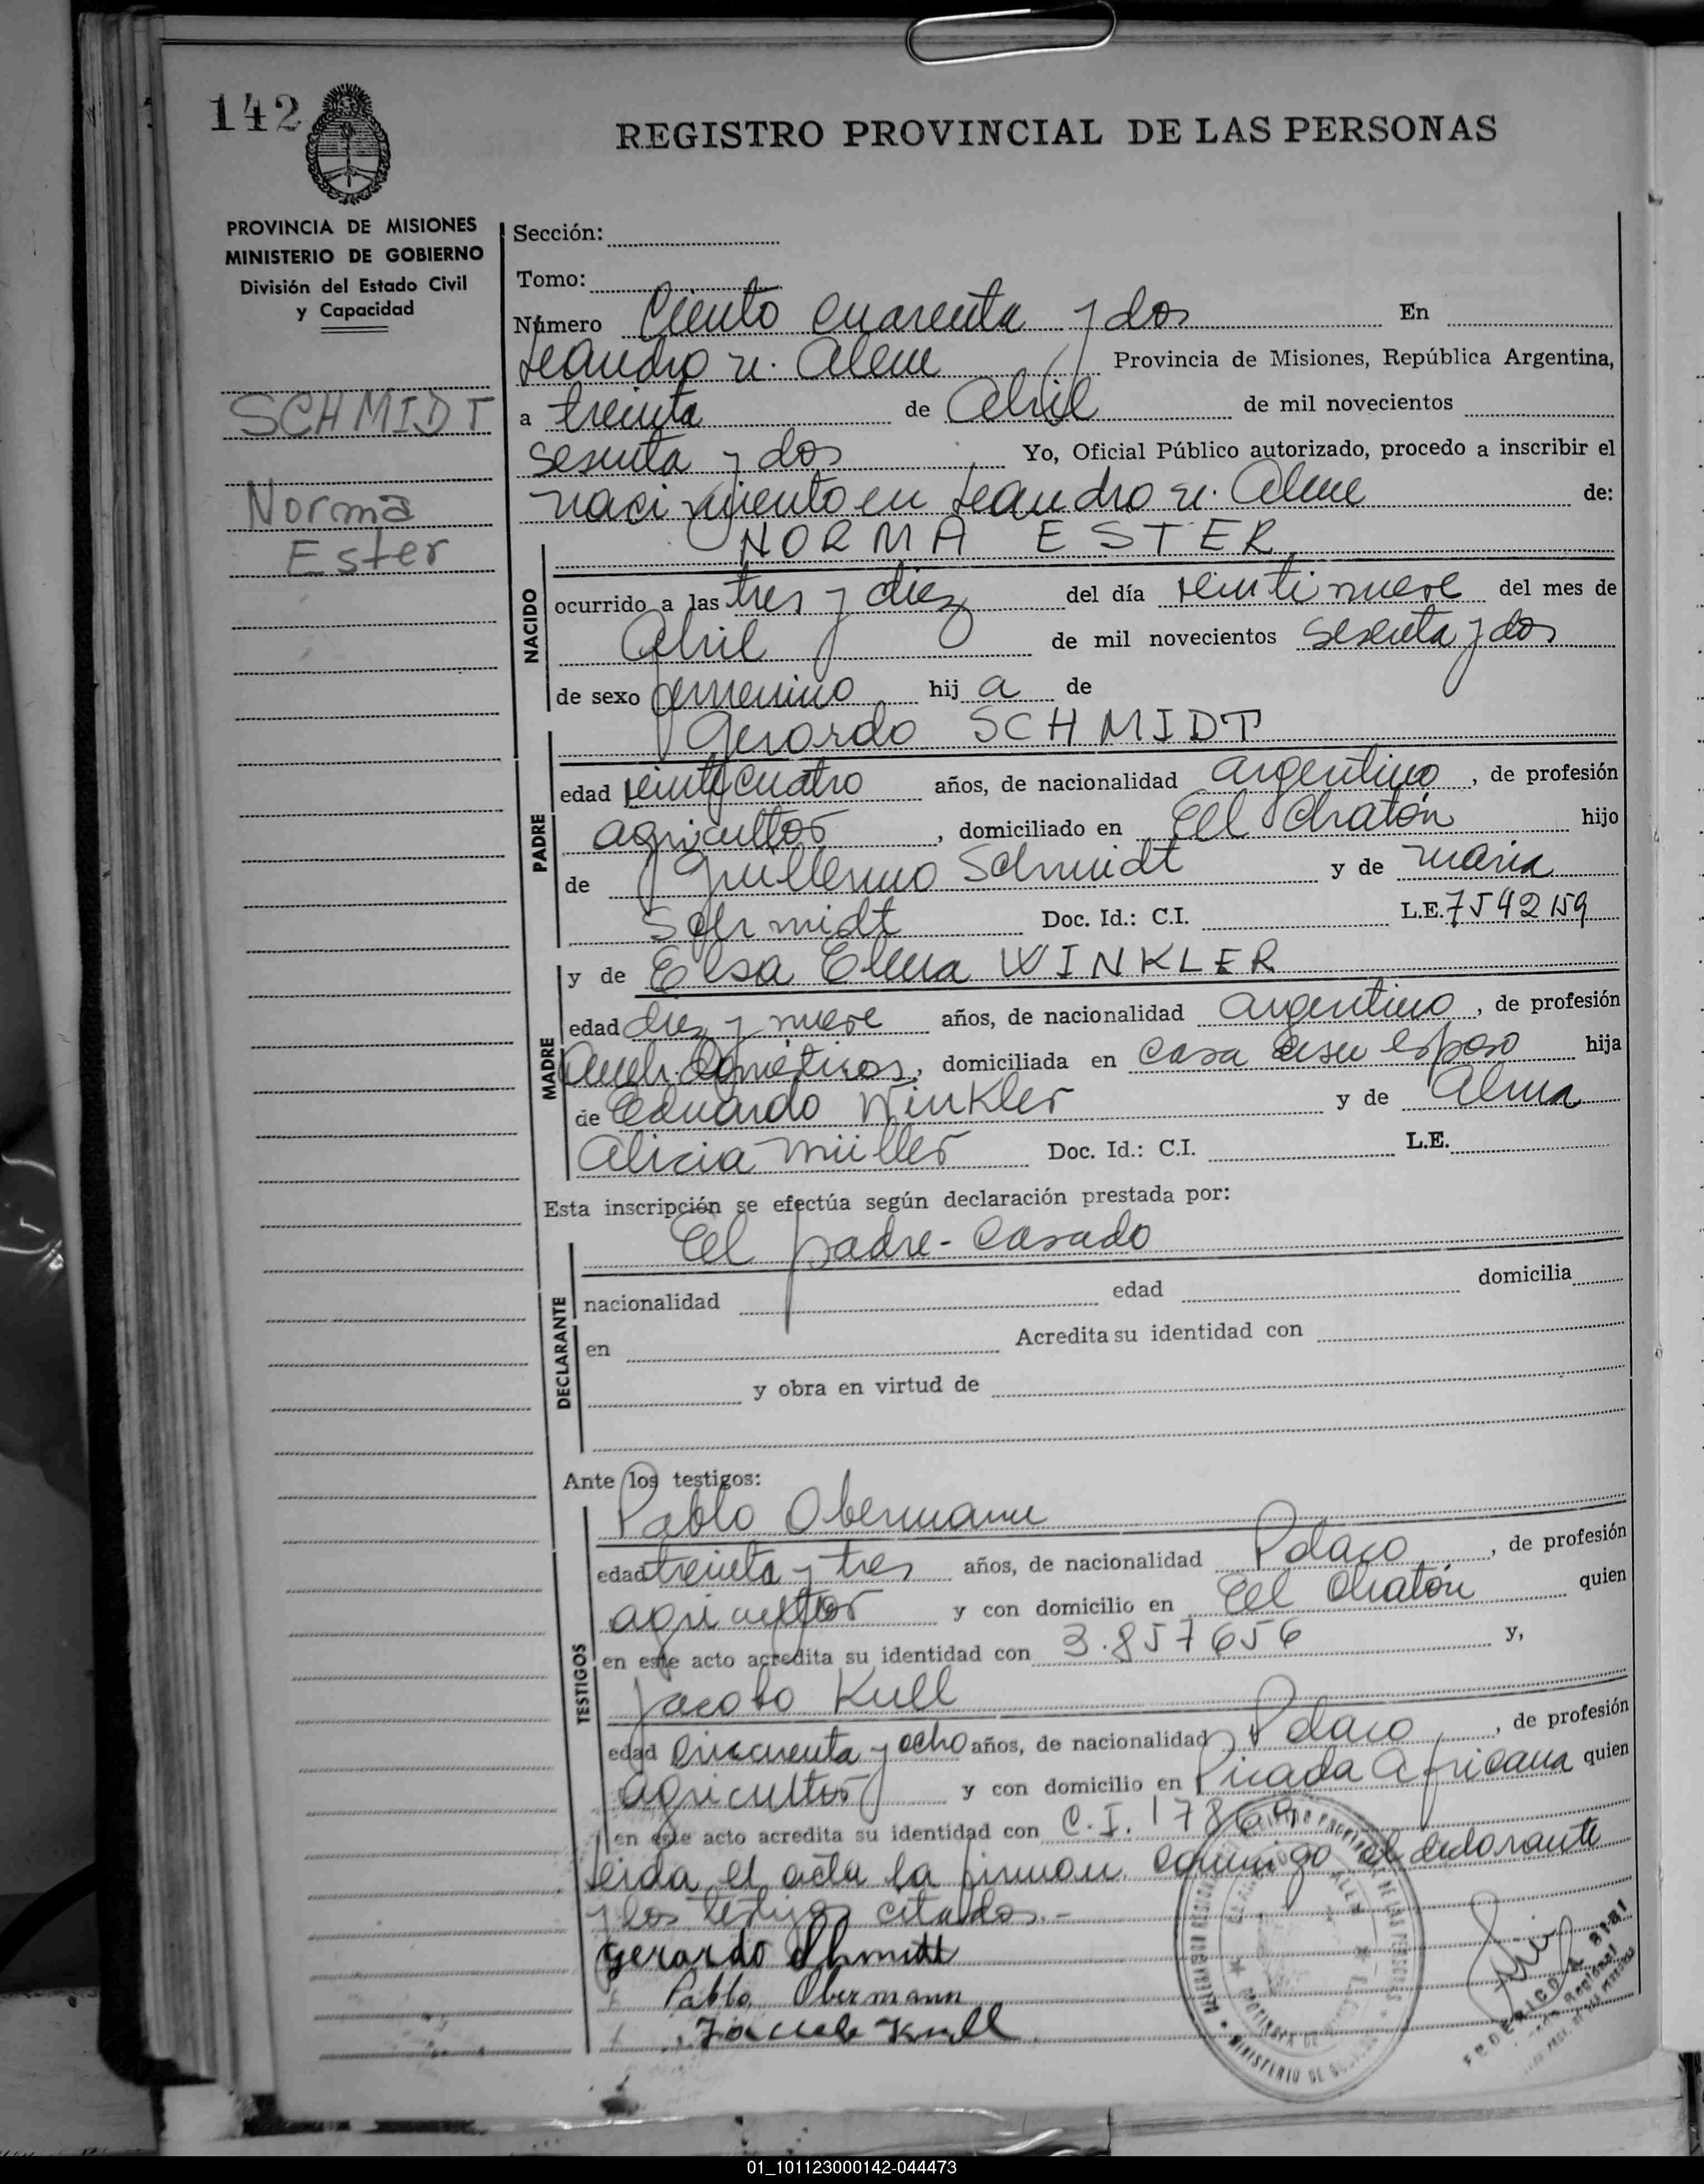 142
REGISTRO PROVINCIAL DE LAS PERSONAS
PROVINCIA DE MISIONES
MINISTERIO DE GOBIERNO
División del Estado Civil
y Capacidad
SCHMIDT
Norma
Ester
Sección:
Tomo:
Número Ciento cuarenta y dos En
Leandro N. Alem Provincia de Misiones, República Argentina,
a treinta de Abril de mil novecientos
sesenta y dos Yo, Oficial Público autorizado, procedo a inscribir el
nacimiento en Leandro N. Alem de:
NORMA ESTER
NACIDO
ocurrido a las tres y diez del día veintinueve del mes de
Abril de mil novecientos sesenta y dos
de sexo femenino hij a de
Gerardo SCHMIDT
PADRE
edad veinticuatro años, de nacionalidad argentino, de profesión
agricultor, domiciliado en El Chatón hijo
de Guillermo Schmidt y de Maria
Schmidt Doc. Id.: C.I. L.E. 7542159
MADRE
y de Elsa Elena WINKLER
edad diez y nueve años, de nacionalidad argentino, de profesión
domiciliada en casa de su esposo hija
de Eduardo Winkler y de Alma
Alicia Müller Doc. Id.: C.I. L.E.
Esta inscripción se efectúa según declaración prestada por:
El padre - Casado
DECLARANTE
nacionalidad edad domicilia
en Acredita su identidad con
y obra en virtud de
Ante los testigos:
TESTIGOS
Pablo Obermann
edad treinta y tres años, de nacionalidad Polaco, de profesión
agricultor y con domicilio en El Chatón quien
en este acto acredita su identidad con 3.857656 y,
Jacobo Kull
edad cincuenta y ocho años, de nacionalidad Polaco, de profesión
agricultor y con domicilio en Picada Africana quien
en este acto acredita su identidad con C.I. 178
Leida el acta la firman conmigo el declarante
y los testigos citados.-
Gerardo Schmidt
Pablo Obermann
Jacob Kull
MINISTERIO DE
FEDERICO A.
01_101123000142-044473